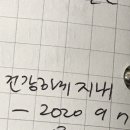 건강하게 지내
- 2020 9 n